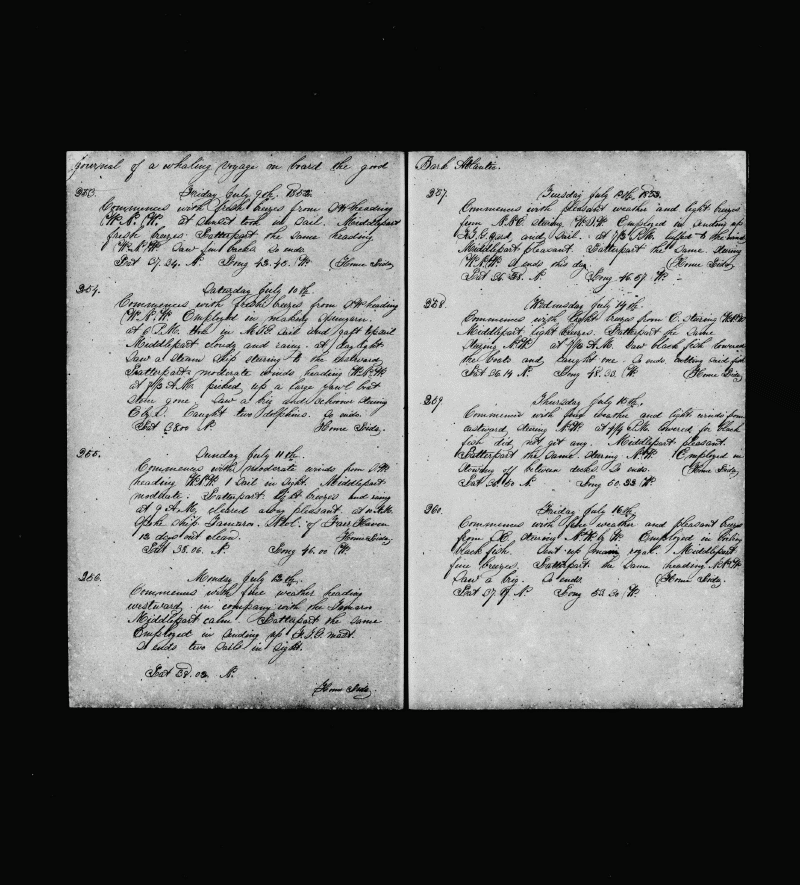 journal of a whaling voyage on board the good
253. Friday July 9th 1852
Commences with fresh breezes from SW heading
W.N.W. at sunset took in sail. Middlepart
fresh breezes. Latterpart the same heading
W.N.W. Saw finbacks. So ends.
Lat 37.34. N. Long 43.40. W. (Home Side)
254. Saturday July 10th
Commences with fresh breezes from SW heading
W.N.W. Employed in making spunyarn.
at 6 P.M. took in M.T.G. sail and gaft topsail
Middlepart cloudy and rainy. at daylight
Saw a steam ship stearing to the eastward.
Latterpart moderate winds heading W.N.W.
at 7½ A.M. picked up a large yawl boat
stern gone. Saw a brig and schooner stearing
E by S. Caught two dolphins. So ends.
Lat 38.00 N. Home Side
255. Sunday July 11th
Commences with moderate winds from SW.
heading W.N.W. 1 sail in sight. Middlepart
moderate. Latterpart light breezes and rainy
at 9 A.M. cleared away pleasant. at
Spoke ship Tamaron. of Fair Haven
12 days out clean. Home Side
Lat 38.06. N. Long 46.00 W.
256. Monday July 12th
Commences with fine weather heading
westward. in company with the Tamaron
Middlepart calm. Latterpart the same
Employed in sending up F.T.G. mast.
So ends two sails in sight.
Lat 38.02. N.
Home Side
Bark Atlantic.
257. Tuesday July 13th 1852.
Commences with pleasant weather and light breezes
from N.N.E. stearing W.S.W. Employed in sending up
F.T.G. yard and sail. at 7½ P.M. luffed to the wind
Middlepart pleasant. Latterpart the same stearing
W.S.W. So ends this day (Home Side)
Lat 36.38. N. Long 46.57. W.
258. Wednesday July 14th
Commences with light breezes from E. stearing W.N.W.
Middlepart light breezes. Latterpart the same
Stearing N.W. at 7½ A.M. saw black fish lowered
the boats and caught one. So ends. cutting said fish
Lat 36.14 N. Long 48.33. W. (Home Side)
259. Thursday July 15th.
Commences with fair weather and light winds from
eastward, stearing N.W. at 4½ P.M. lowered for black
fish did not get any. Middlepart pleasant.
Latterpart the same stearing N.W. Employed in
stowing off between decks. So ends. (Home Side)
Lat 36.50 N. Long 50.33 W.
260. Friday July 16th
Commences with fine weather and pleasant breezes
from SE. stearing N.W. by W. Employed in boiling
black fish. Sent up main royal. Middlepart
fine breezes. Latterpart the same heading N.N.W.
Saw a brig. So ends. (Home Side)
Lat 37.17 N. Long 53.30. W.